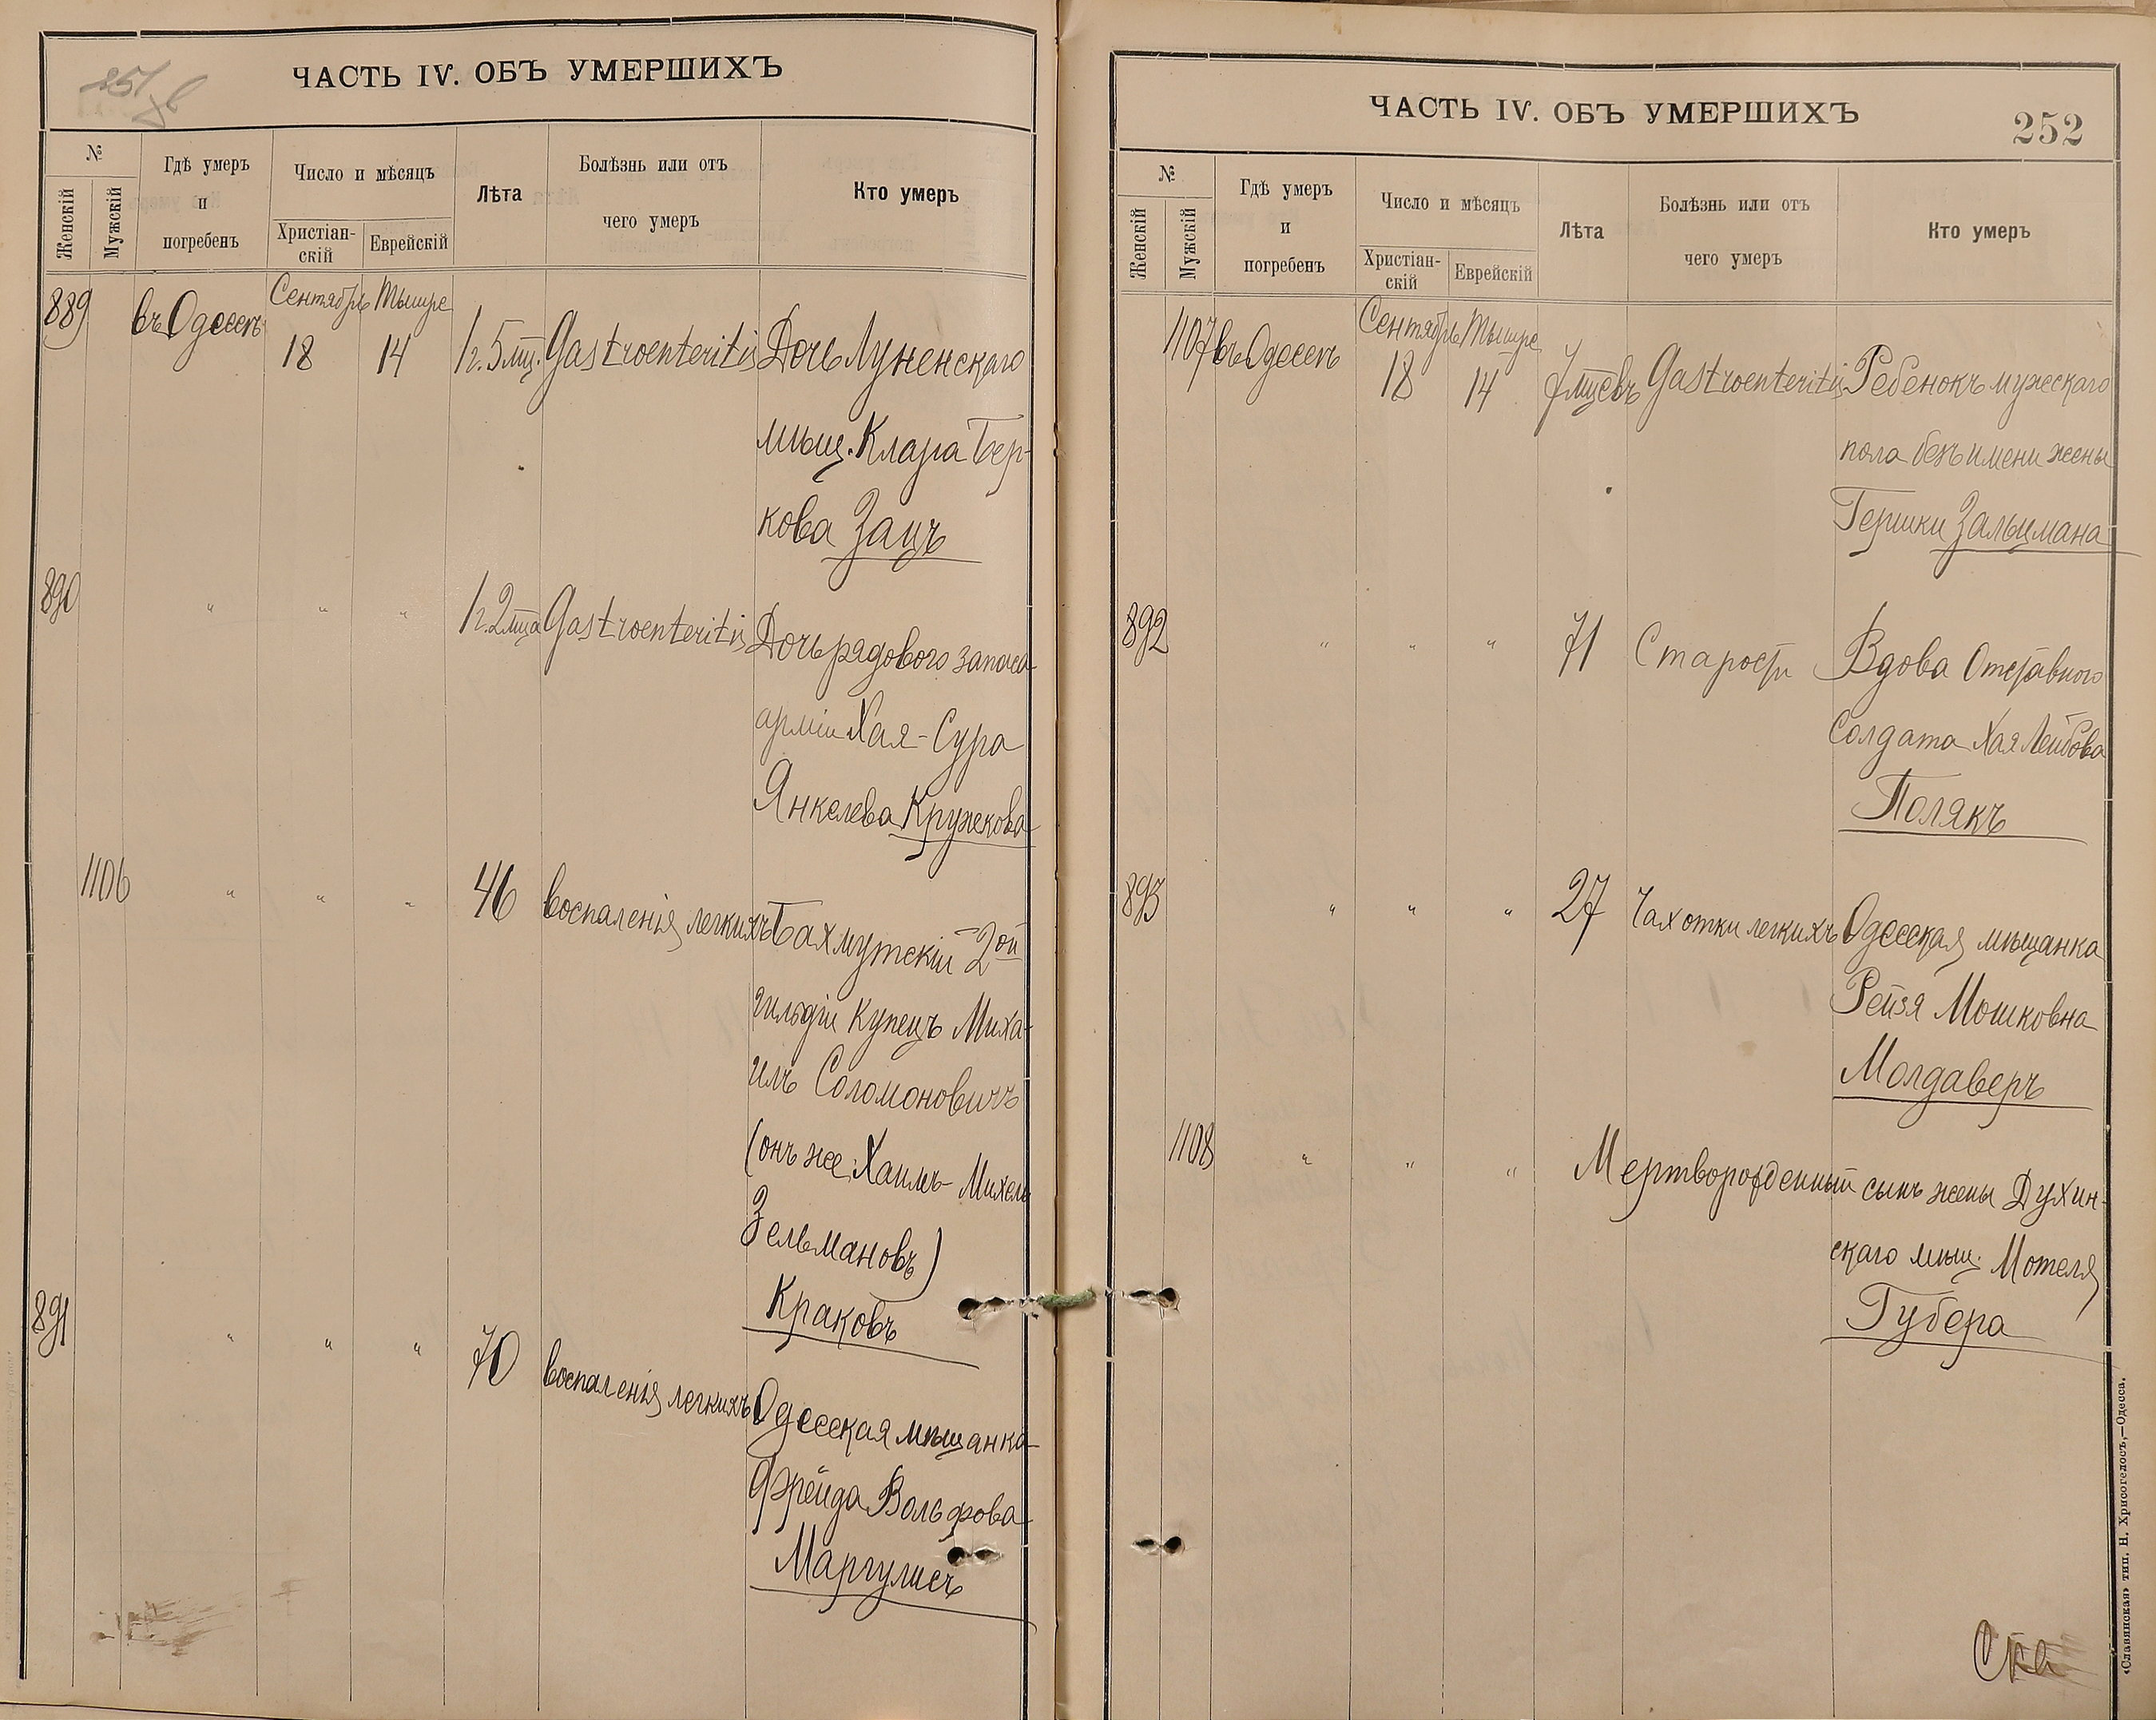 251 об
ЧАСТЬ IV. ОБЪ УМЕРШИХЪ
№
Женскій
Мужскій
Гдѣ умеръ
и
погребенъ
Число и мѣсяцъ
Христіан-
скій
Еврейскій
Лѣта
Болѣзнь или отъ
чего умеръ
Кто умеръ
889 въ Одессѣ Сентябрь 18 Тишре 14 1г. 5мц. Gastroenteritis Дочь Луненскаго
мѣщ. Клара Бер-
кова Зацъ
890 " " " 1г. 2мца Gastroenteritis Дочь рядового запаса
арміи Хая-Сура
Янкелева Кружкова
1106 " " " 46 воспаленія легкихъ Бахмутскій 2ой
гильдіи Купецъ Миха-
илъ Соломоновичъ
(онъ же Хаимъ-Михель
Зельмановъ)
Краковъ
891 " " " 70 воспаленія легкихъ Одесская мѣщанка
Фрейда Вольфова
Маргулисъ
ЧАСТЬ IV. ОБЪ УМЕРШИХЪ
252
№
Женскій
Мужскій
Гдѣ умеръ
и
погребенъ
Число и мѣсяцъ
Христіан-
скій
Еврейскій
Лѣта
Болѣзнь или отъ
чего умеръ
Кто умеръ
1107 въ Одессѣ Сентябрь 18 Тишре 14 7 мцевъ Gastroenteritis Ребенокъ мужескаго
пола безъ имени жены
Гершки Зальцмана
892 " " " 71 Старости Вдова Отставного
Солдата Хая Лейбова
Полякъ
893 " " " 27 Чахотки легкихъ Одесская мѣщанка
Рейзя Мошковна
Молдаверъ
1108 " " " Мертворожденный сынъ жены Духин-
скаго мѣщ. Мотеля
Губера
«Славянская» тип. Н. Хрисогелосъ,—Одесса.